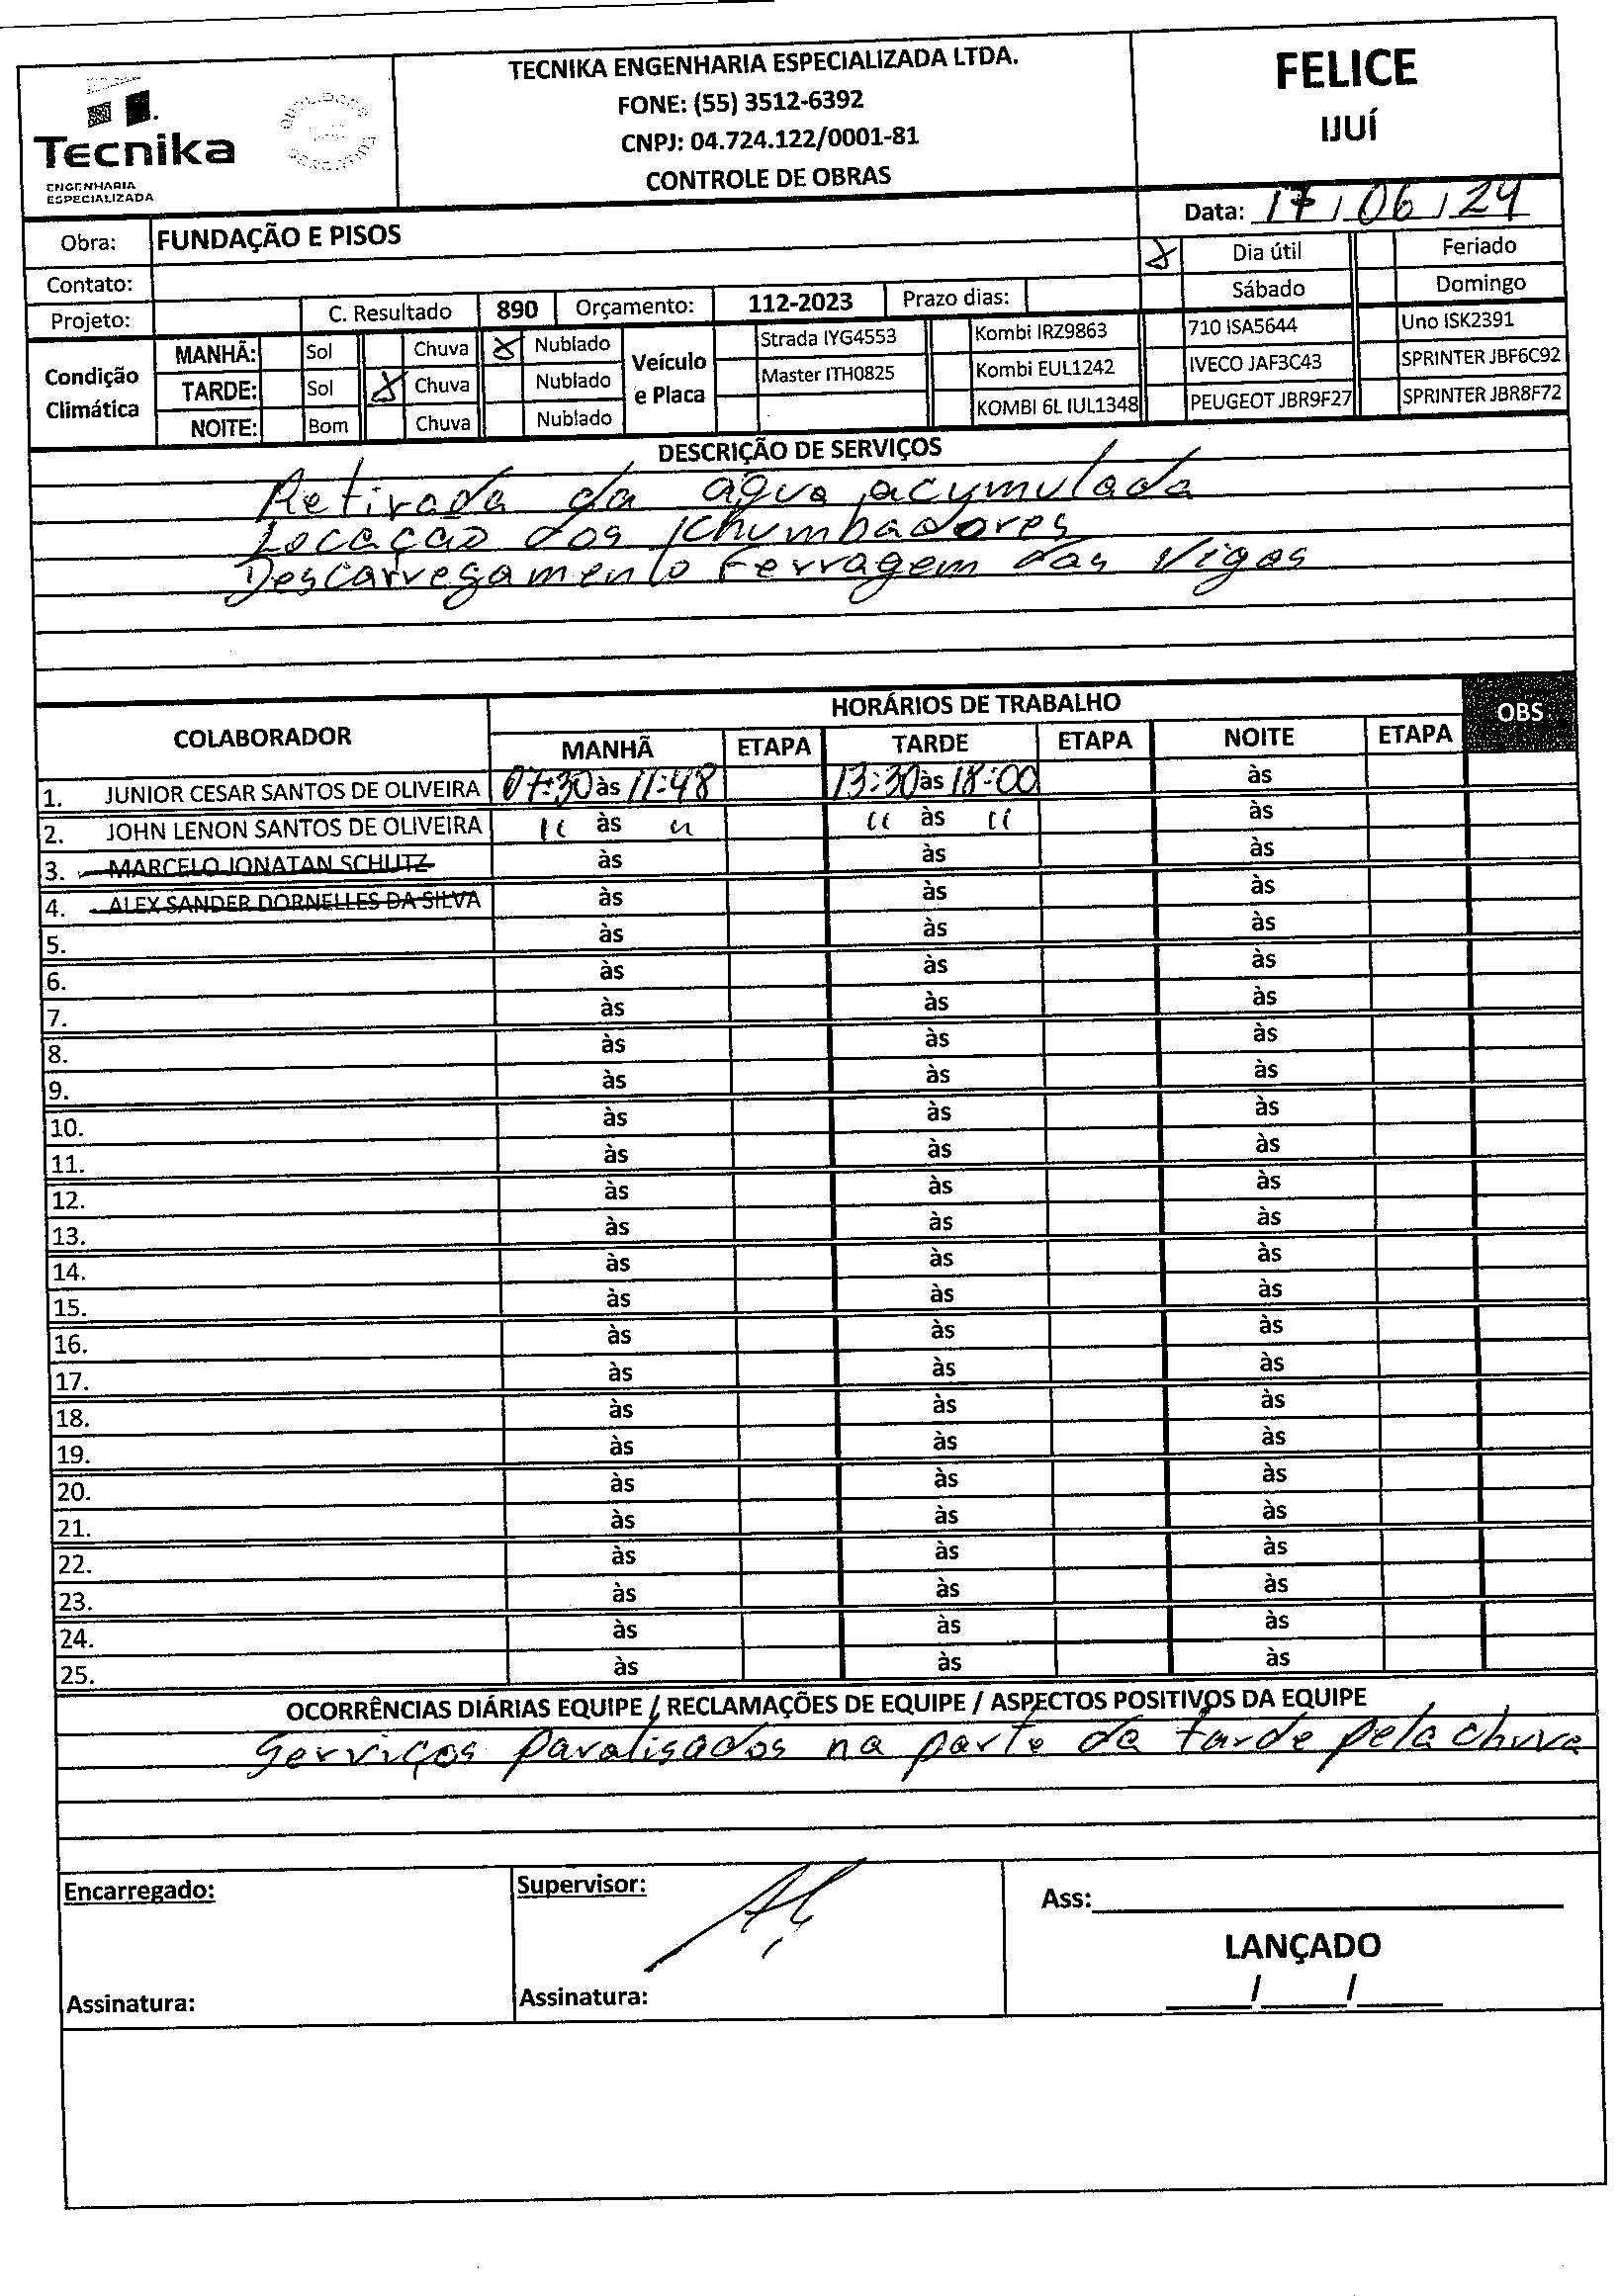 TECNIKA ENGENHARIA ESPECIALIZADA LTDA.
FONE: (55) 3512-6392
CNPJ: 04.724.122/0001-81
CONTROLE DE OBRAS
Tecnika
ENGENHARIA
ESPECIALIZADA
FELICE
IJUÍ
Data: 17 / 06 / 24
Obra: FUNDAÇÃO E PISOS
Dia útil Feriado
Contato:
Sábado Domingo
Projeto: C. Resultado 890 Orçamento: 112-2023 Prazo dias:
Condição Climática
MANHÃ: Sol Chuva X Nublado
TARDE: Sol X Chuva Nublado
NOITE: Bom Chuva Nublado
Veículo e Placa
Strada IYG4553 Kombi IRZ9863 710 ISA5644 Uno ISK2391
Master ITH0825 Kombi EUL1242 IVECO JAF3C43 SPRINTER JBF6C92
KOMBI 6L IUL1348 PEUGEOT JBR9F27 SPRINTER JBR8F72
DESCRIÇÃO DE SERVIÇOS
Retirada da água acumulada
Locação dos Chumbadores
Descarregamento Ferragem das Vigas
COLABORADOR HORÁRIOS DE TRABALHO OBS
MANHÃ ETAPA TARDE ETAPA NOITE ETAPA
1. JUNIOR CESAR SANTOS DE OLIVEIRA 07:30 às 11:48 13:30 às 18:00 às
2. JOHN LENON SANTOS DE OLIVEIRA " às " " às " às
3. MARCELO JONATAN SCHUTZ às às às
4. ALEX SANDER DORNELLES DA SILVA às às às
5. às às às
6. às às às
7. às às às
8. às às às
9. às às às
10. às às às
11. às às às
12. às às às
13. às às às
14. às às às
15. às às às
16. às às às
17. às às às
18. às às às
19. às às às
20. às às às
21. às às às
22. às às às
23. às às às
24. às às às
25. às às às
OCORRÊNCIAS DIÁRIAS EQUIPE / RECLAMAÇÕES DE EQUIPE / ASPECTOS POSITIVOS DA EQUIPE
Serviços paralisados na parte da tarde pela chuva
Encarregado: Supervisor: Ass:
LANÇADO
Assinatura: Assinatura: / /